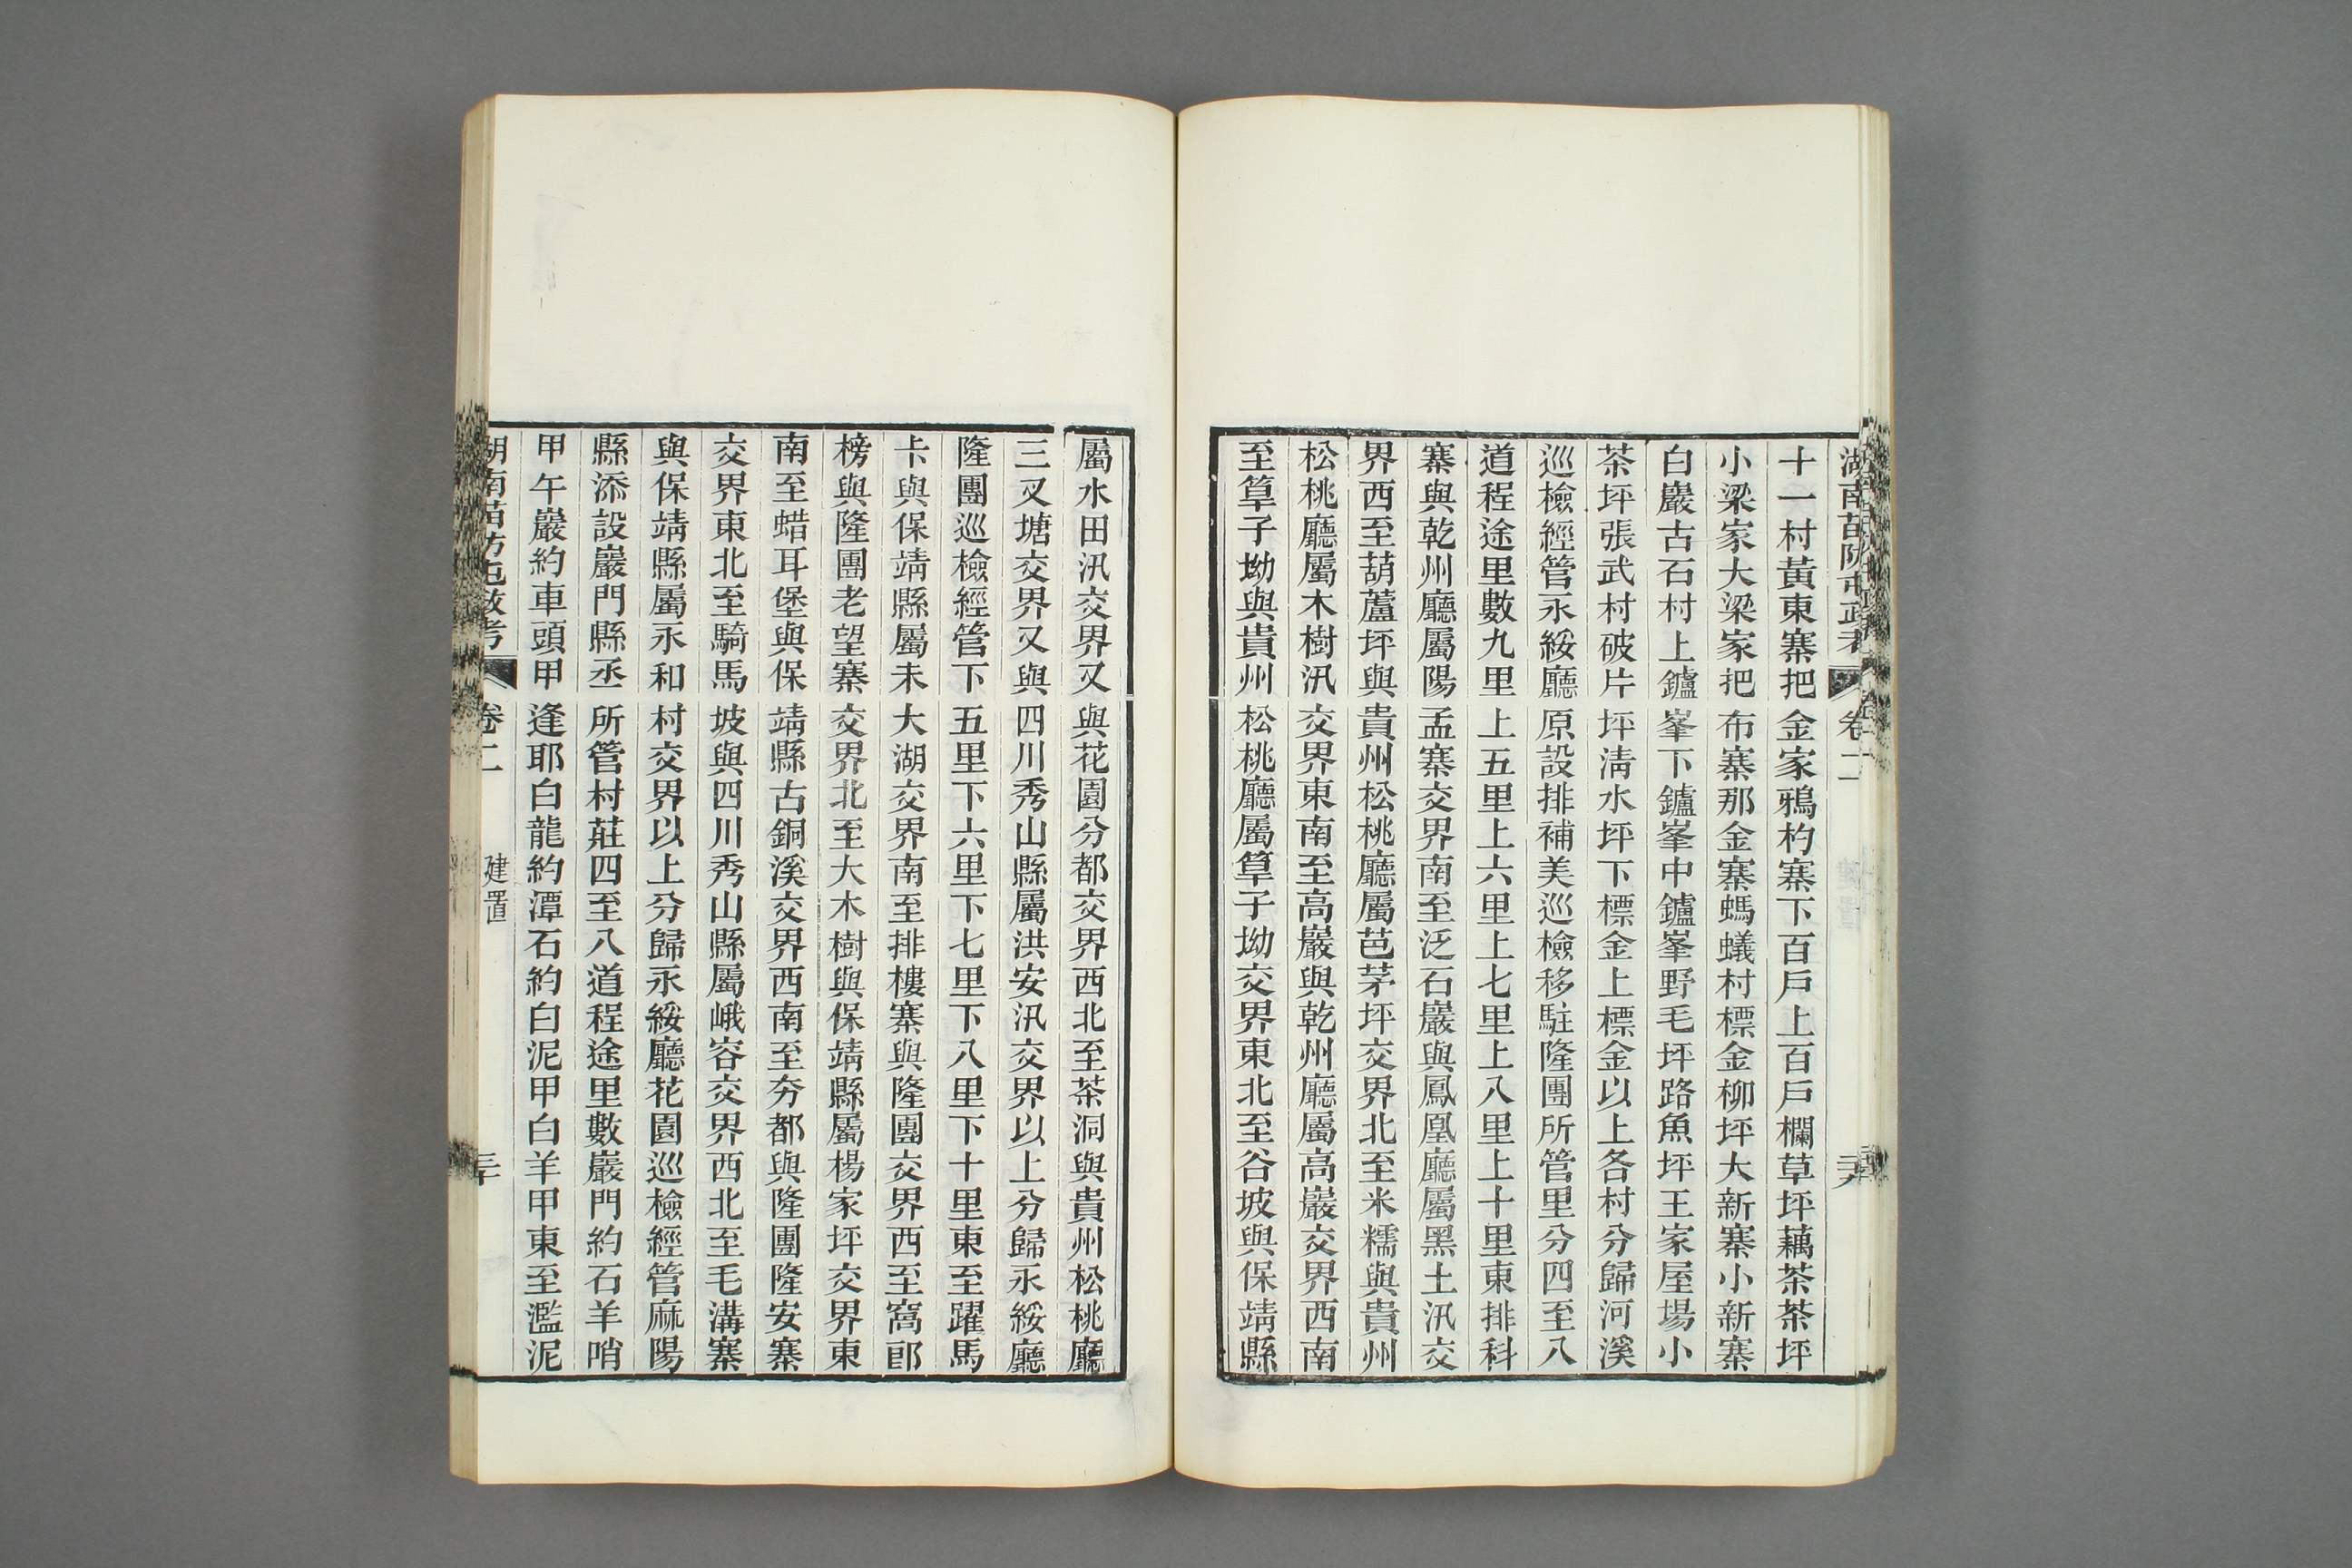 湖南苗防屯政考 卷二
十一村黃東寨把金家鴉杓寨下百戶上百戶欄草坪藕茶茶坪
小梁家大梁家把布寨那金寨螞蟻村標金柳坪大新寨小新寨
白巖古石村上鑪峯下鑪峯中鑪峯野毛坪路魚坪王家屋場小
茶坪張武村破片坪淸水坪下標金上標金以上各村分歸河溪
巡檢經管永綏廳原設排補美巡檢移駐隆團所管里分四至八
道程途里數九里上五里上六里上七里上八里上十里東排科
寨與乾州廳屬陽孟寨交界南至泛石巖與鳳凰廳屬黑土汛交
界西至葫蘆坪與貴州松桃廳屬芭茅坪交界北至米糯與貴州
松桃廳屬木樹汛交界東南至高巖與乾州廳屬高巖交界西南
至筸子坳與貴州松桃廳屬筸子坳交界東北至谷坡與保靖縣
屬水田汛交界又與花園分都交界西北至茶洞與貴州松桃廳
三叉塘交界又與四川秀山縣屬洪安汛交界以上分歸永綏廳
隆團巡檢經管下五里下六里下七里下八里下十里東至躍馬
卡與保靖縣屬未大湖交界南至排樓寨與隆團交界西至窩郎
榜與隆團老望寨交界北至大木樹與保靖縣屬楊家坪交界東
南至蜡耳堡與保靖縣古銅溪交界西南至夯都與隆團隆安寨
交界東北至騎馬坡與四川秀山縣屬峨容交界西北至毛溝寨
與保靖縣屬永和村交界以上分歸永綏廳花園巡檢經管麻陽
縣添設巖門縣丞所管村莊四至八道程途里數巖門約石羊哨
甲午巖約車頭甲逢耶白龍約潭石約白泥甲白羊甲東至濫泥
湖南苗防屯政考 卷二 建置 三十